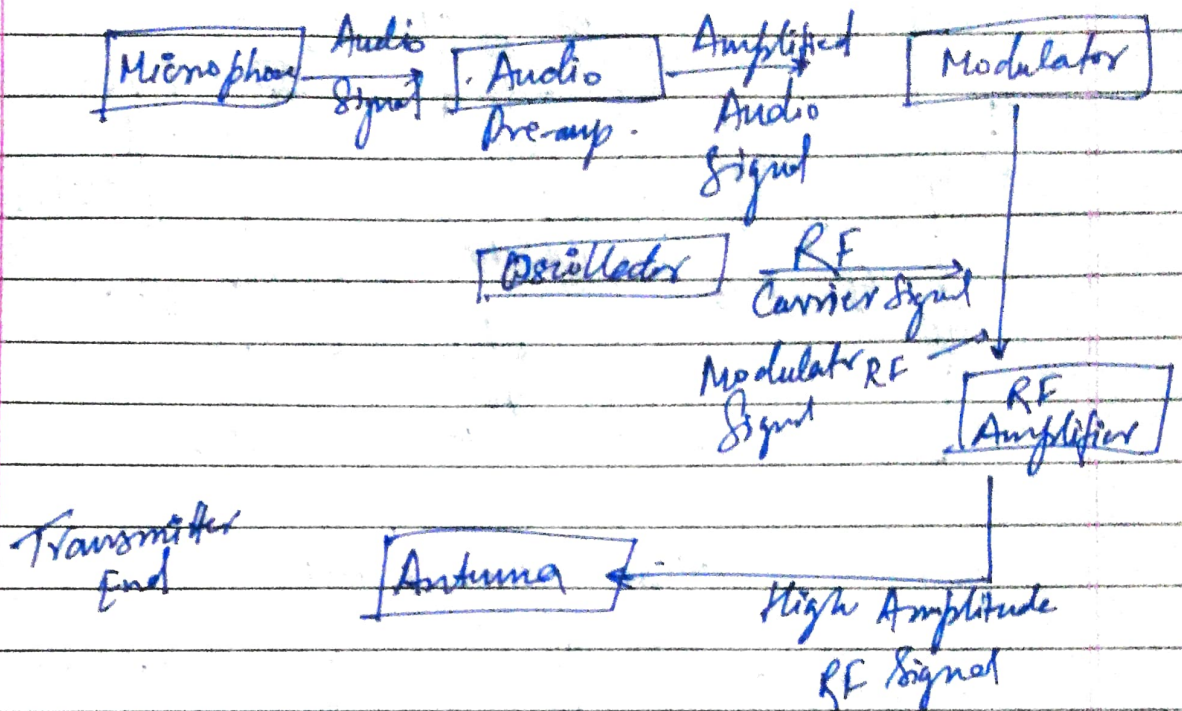 Microphone
Audio
Signal
Audio
Pre-amp.
Amplified
Audio
Signal
Modulator
Oscillator
RF
Carrier Signal
Modulator RF
Signal
RF
Amplifier
Transmitter
End
Antenna
High Amplitude
RF Signal